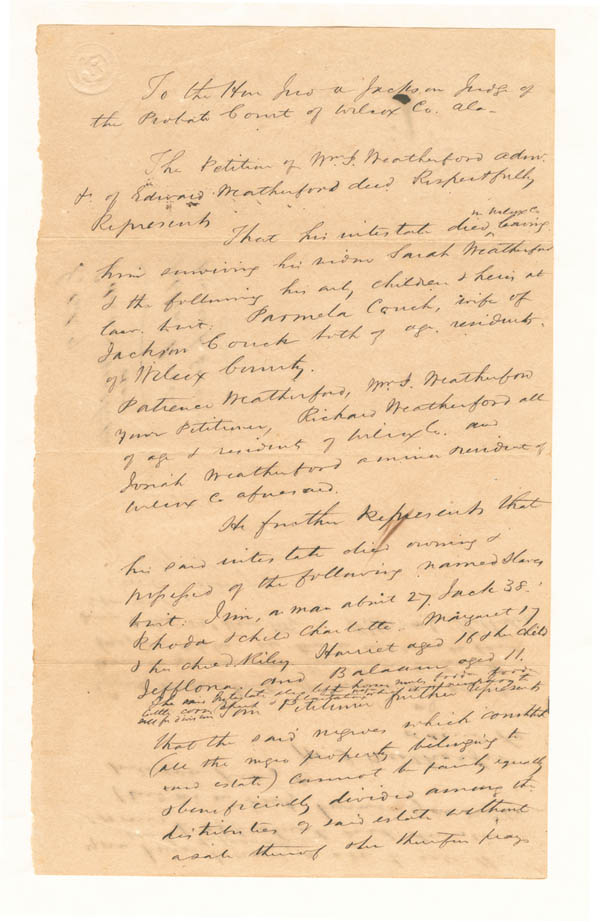 To the Hon Jno A Jackson Judge of
the Probate Court of Wilcox Co. Ala-
The Petition of Wm. J. Weatherford adm.
&. of Edward Weatherford decd. Respectfully
Represents
in Wilcox Co
That his intestate died leaving
him surviving his widow Sarah Weatherford
& the following his only children & heirs at
law. towit. Parmela Couch, wife of
Jackson Couch both of age. residents.
of Wilcox County.
Patience Weatherford, Wm. J. Weatherford
your Petitioner, Richard Weatherford all
of age & residents of Wilcox Co. and
Josiah Weatherford a minor resident of
Wilcox Co aforesaid.
He further Represents that
his said intestate died owning &
possessed of the following named slaves
towit. Jim, a man about 27. Jack 38.
Rhoda & child Charlotte. Margaret 17
& her child Riley. Harriet aged 16 & her child
Jefflona. and Balaam aged 11.
The said Intestate also left some mules
cattle corn
Your Petitioner further represents
that the said negroes which constitute
(all the negro property belonging to
said estate) cannot be fairly equally
& beneficially divided among the
distributees of said estate without
a sale thereof. He therefore prays